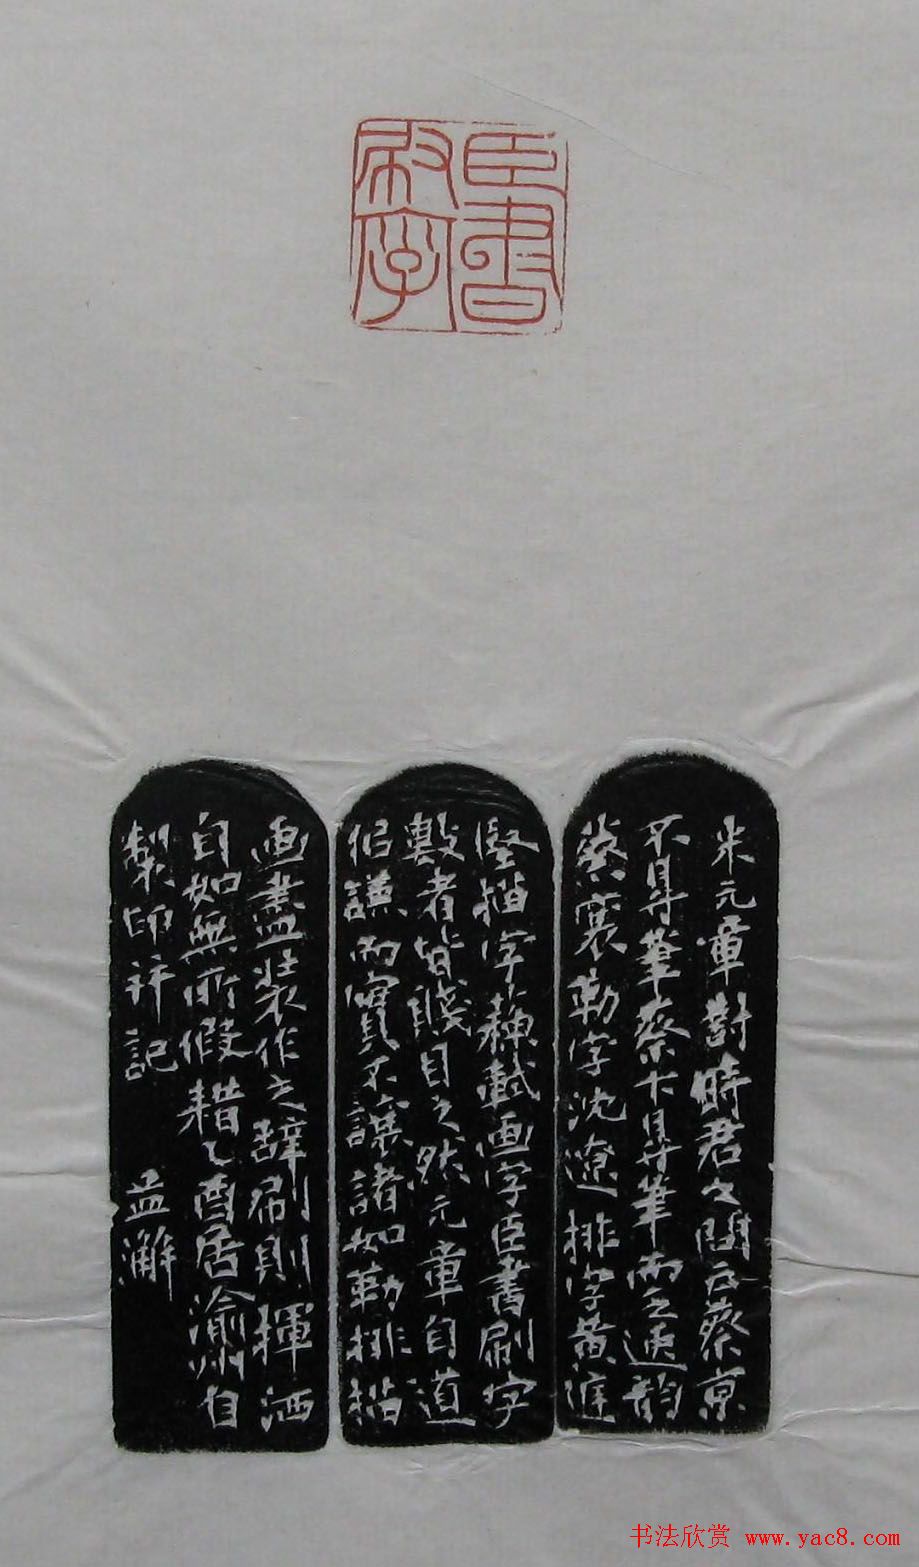 臣書
刷字
米元章對時君之問云蔡京
不得筆蔡卞得筆而乏逸韵
蔡襄勒字沈遼排字黄庭
堅描字蘇軾画字臣書刷字
數者皆賤目之然元章自道
似謙而實不讓諸如勒排描
画盡裝作之辭刷則揮洒
自如無所假耤乙酉居渝州自
製印并記 益澥
书法欣赏 www.yac8.com